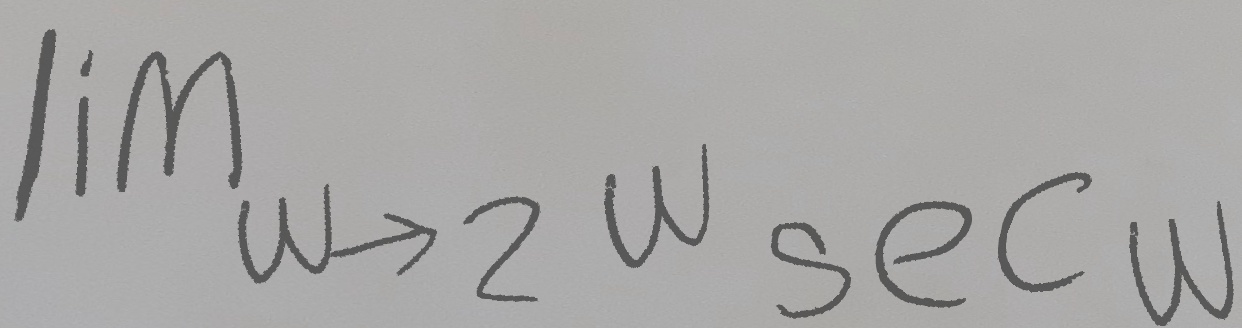 lim w→2 w sec w